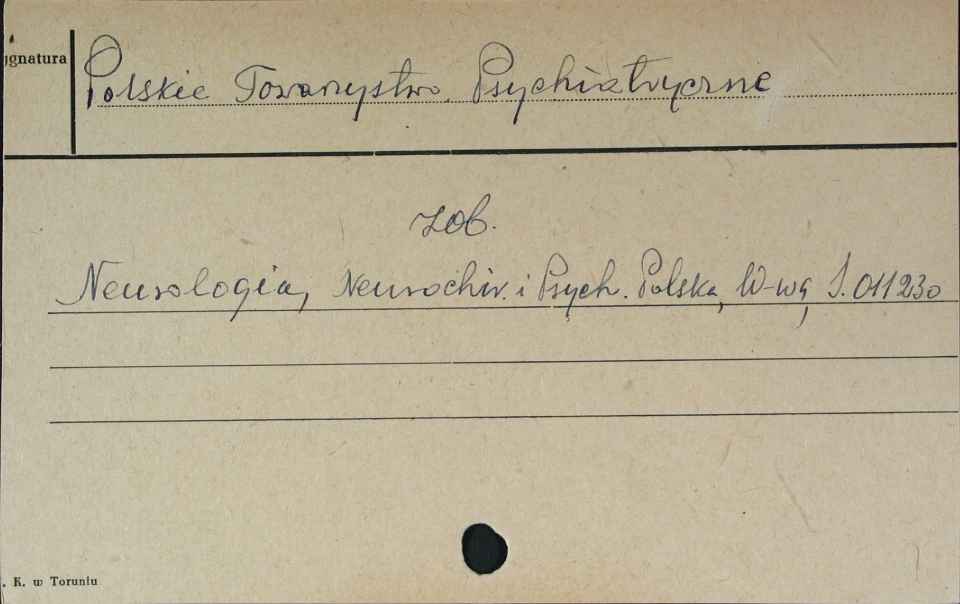 ygnatura
Polskie Towarzystwo Psychiatryczne
zob.
Neurologia, Neurochir. i Psych. Polska, W-wa, S. 011230
. K. w Toruniu